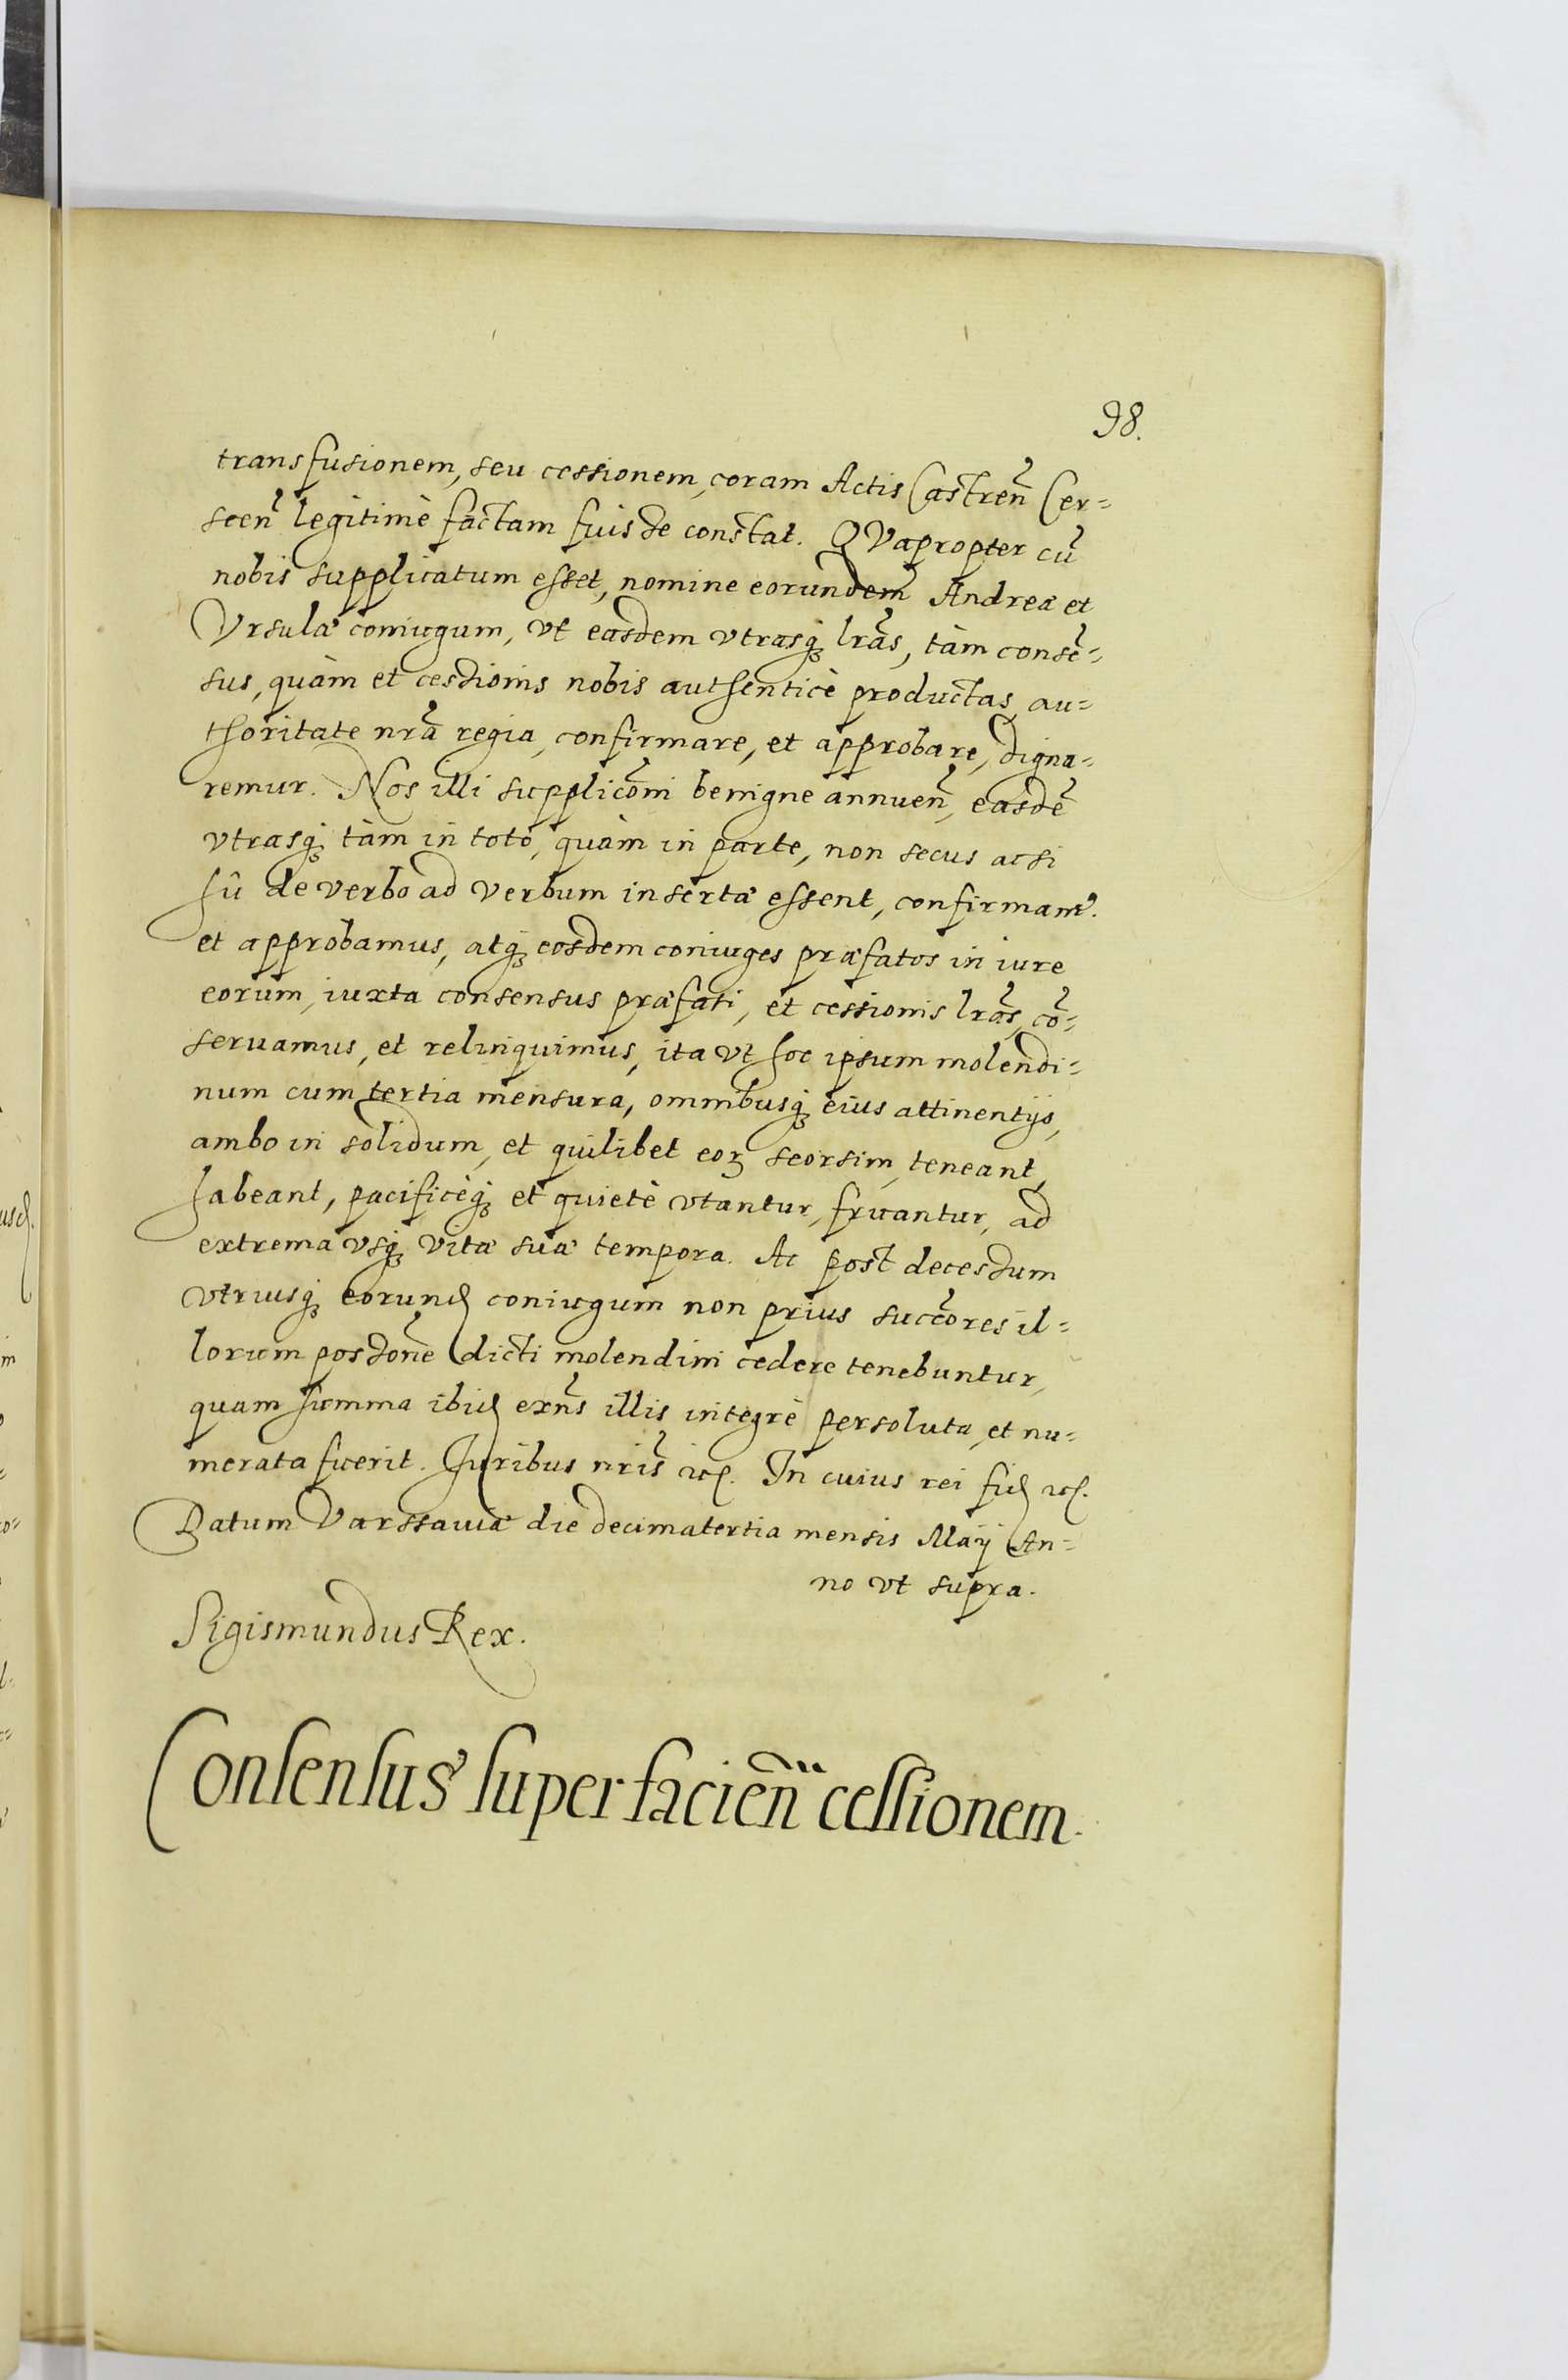 98.
transfusionem, seu cessionem, coram Actis Castren̄ Cer=
seen̄ legitimè factam fuisse constat. QVapropter cū
nobis supplicatum esset, nomine eorundem Andreæ et
Vrsulæ coniugum, vt easdem vtrasq̢ lrās, tàm consē=
sus, quàm et cessionis nobis authenticè productas, au=
thoritate nrā regia, confirmare, et approbare, digna=
remur. Nos illi supplicōni benigne annuen̄, easdē
vtrasq̢ tàm in toto, quàm in parte, non secus ac si
hîc de verbo ad verbum insertæ essent, confirmamꝰ.
et approbamus, atq̢ eosdem coniuges præfatos in iure
eorum, iuxta consensus præfati, et cessionis lrās, cō=
seruamus, et relinquimus, ita vt hoc ipsum molendi=
num cum tertia mensura, omnibusq̢ eius attinentijs,
ambo in solidum, et quilibet eoꝝ seorsim, teneant,
habeant, pacificèq̢ et quietè vtantur, fruantur, ad
extrema vsq̢ vitæ suæ tempora. Ac post decessum
vtriusq̢ eorund̄ coniugum non prius succēores il=
lorum possionē dicti molendini cedere tenebuntur,
quam summa ibid̄ exn̄s illis integrè persoluta, et nu=
merata fuerit. Juribus nris̄ etc. In cuius rei fid̄ etc.
Datum Varssauiæ die decimatertia mensis Maij An=
no vt supra.
Sigismundus Rex.
Consensus super facien̄ cessionem.